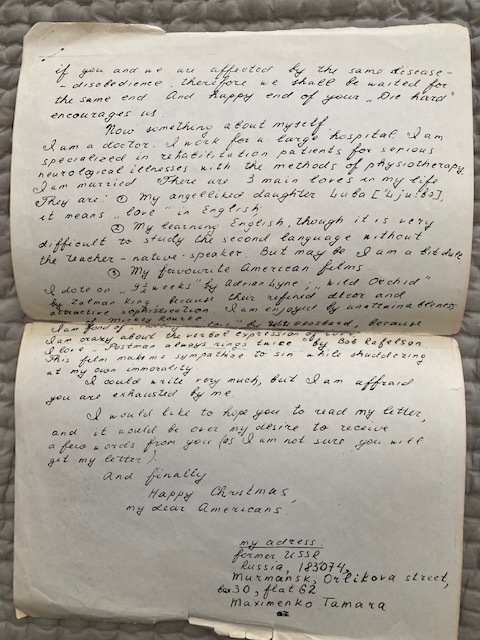 if you and we are affected by the same disease -
- disobedience. therefore we shall be waited for
the same end. And happy end of your „Die hard"
encourages us.
Now something about myself.
I am a doctor. I work for a large hospital. I am
specialized in rehabilitation patients for serious
neurological illnesses with the methods of physiotherapy.
I am married. There are 3 main loves in my life
They are: ① My angelliked daughter Luba ['Lju:bə],
it means „love" in English;
② My learning English, though it is very
difficult to study the second language without
the teacher-native-speaker. But may be I am a bit dull
③ My favourite American films.
I dote on „9½ weeks" by Adrian Lyne; „Wild Orchid"
by Zalman King, because their refined decor and
attractive sophistication. I am enjoyed by unattainableness
Mickey Rourke
I am fond of by because
I am crazy about the verbal expression of
I love „Postman always rings twice" by Bob Rafelson.
This film make me sympathize to sin while shuddering
at my own immorality.
I could write very much, but I am affraid
you are exhausted by me.
I would like to hope you to read my letter,
and it would be over my desire to receive
a few words from you (as I am not sure you will
get my letter).
And finally
Happy Christmas,
my dear Americans
my adress:
former USSR
Russia, 183074,
Murmansk, Orlikova street,
30, flat 62
Maximenko Tamara